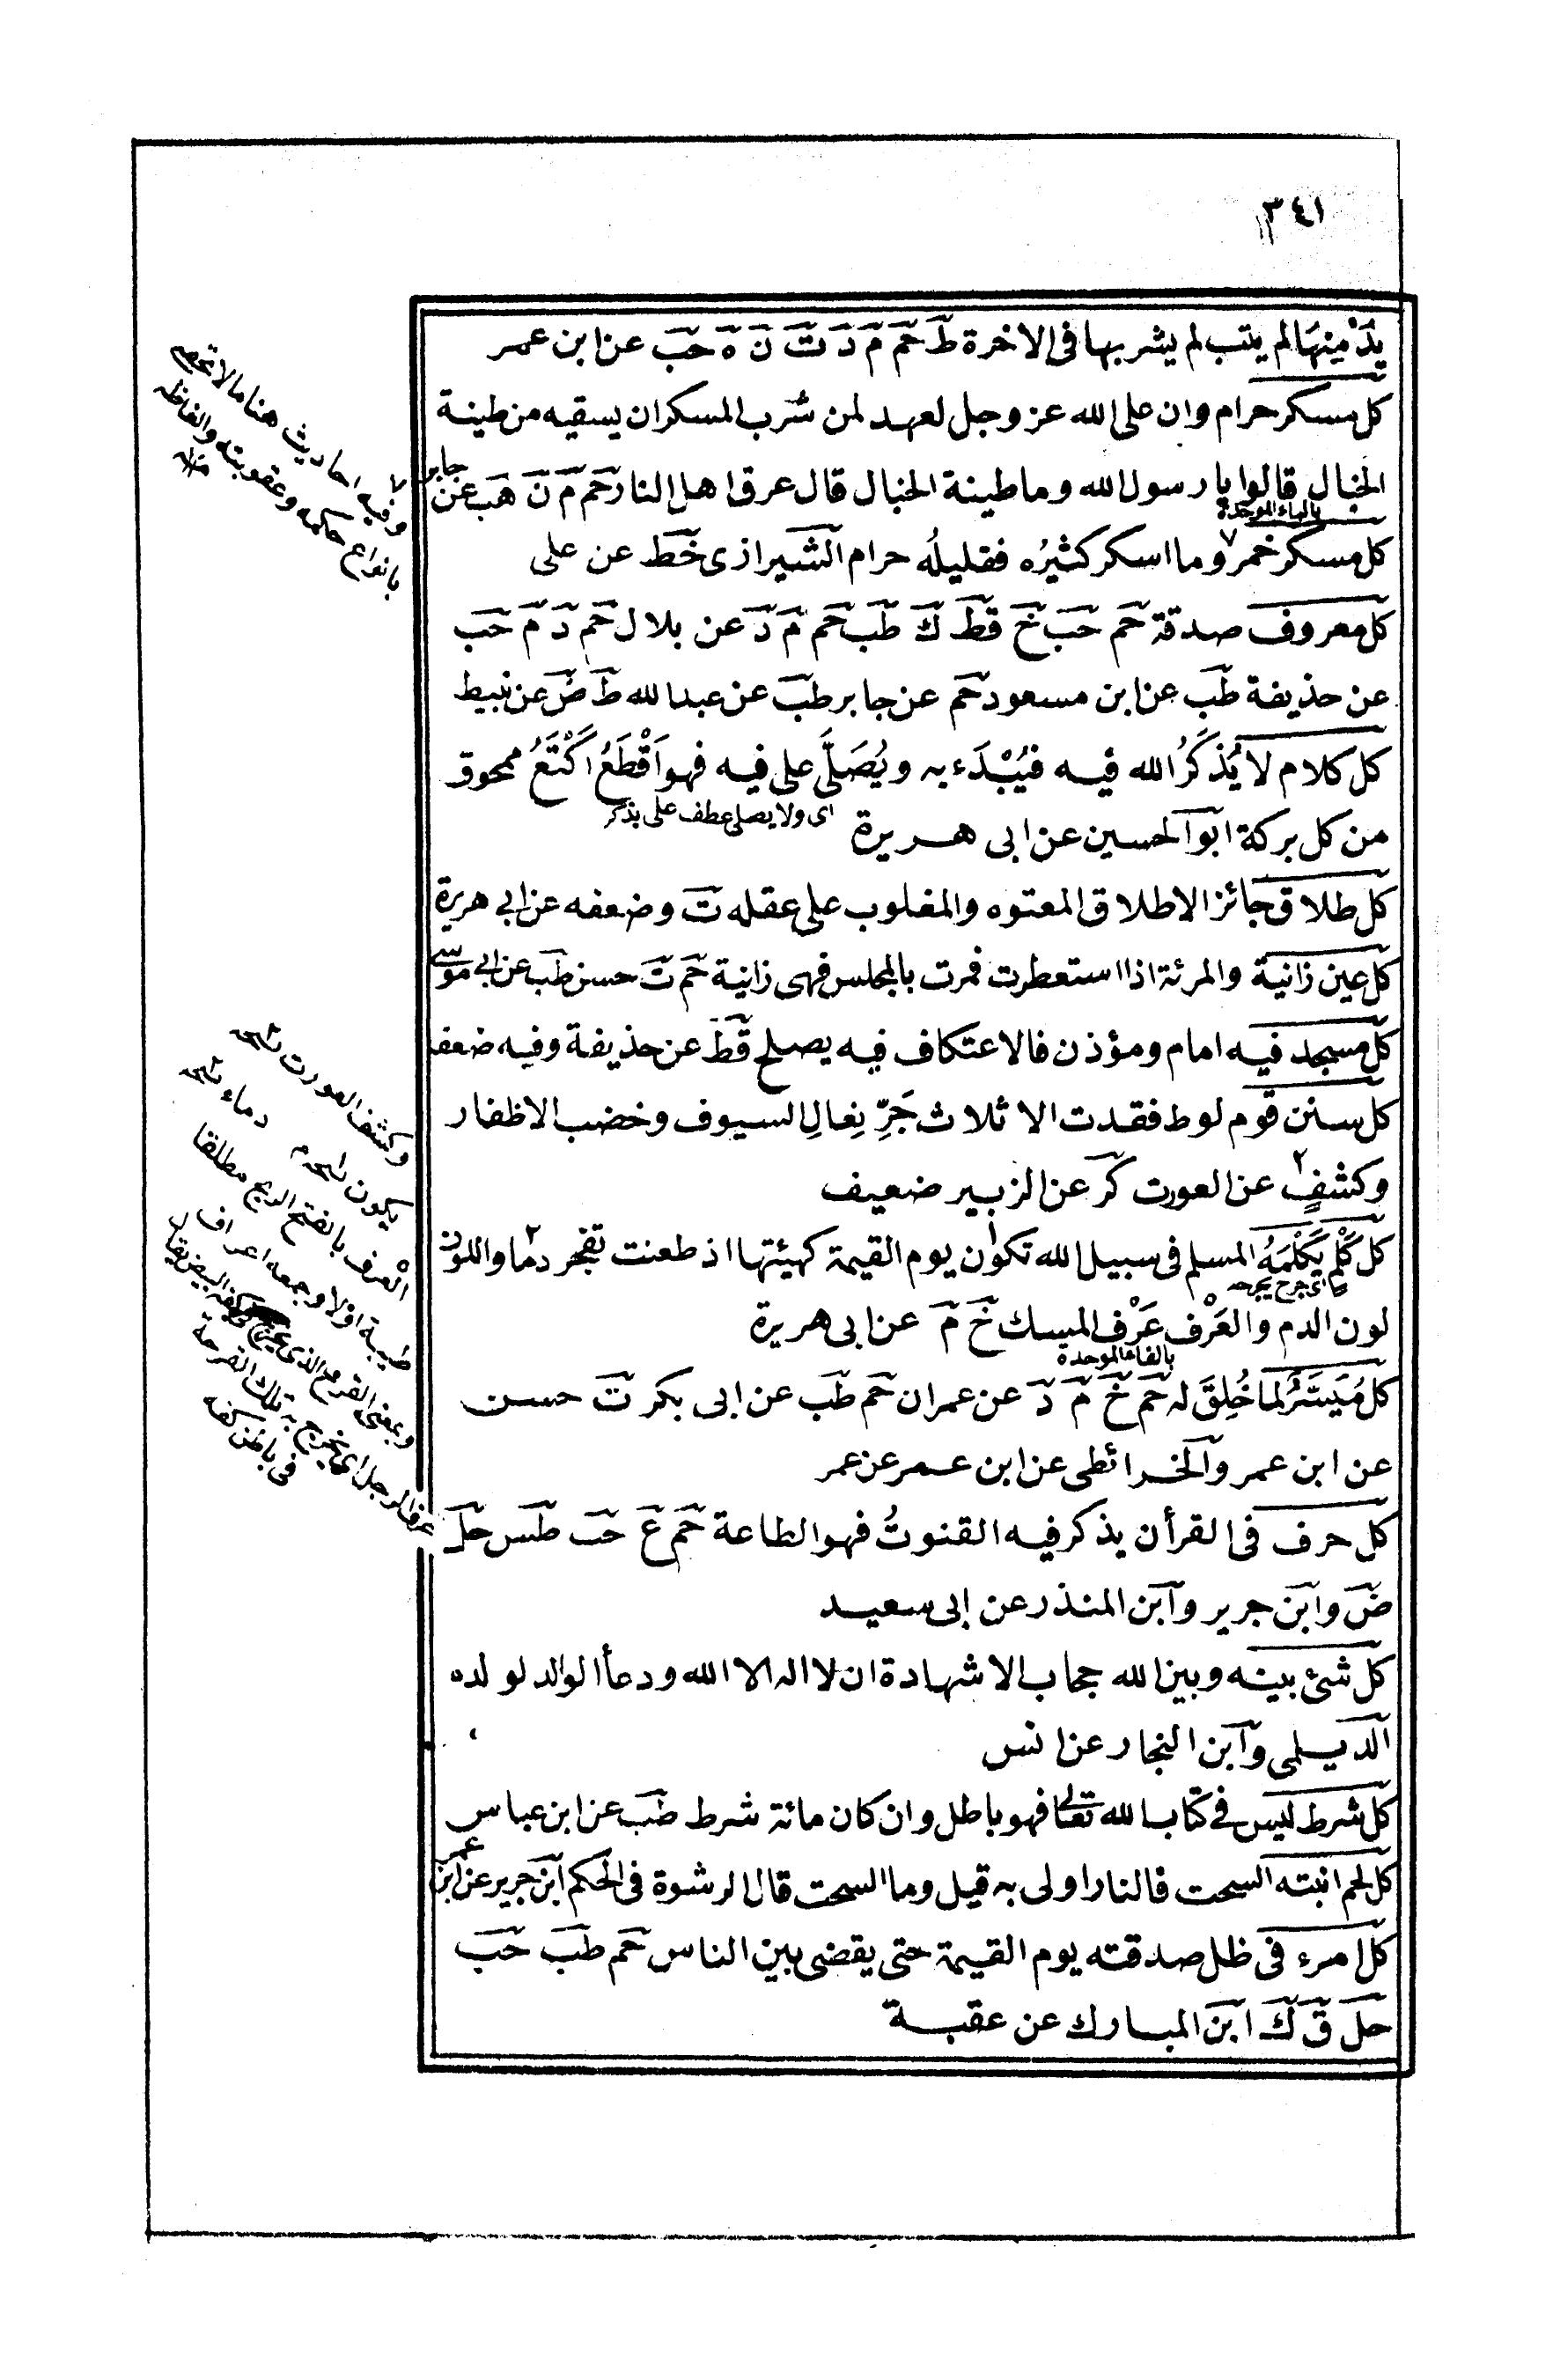 ٣٤١
يُدْمِنِهَا لم يتب لم يشربها في الاخرة ط حم م د ت ن ه حب عن ابن عمر
كل مسكر حرام وان على الله عز وجل لعهد لمن شرب المسكران يسقيه من طينة
الخبال قالوا يا رسول الله وما طينة الخبال قال عرق اهل النار حم م ن هب عن جابر
بالباء الموحدة
كل مسكر خمر وما اسكر كثيرُه فقليلُه حرام الشيرازى خط عن على
كل معروف صدقة حم حب خ قط ك طب حم م د عن بلال حم د م حب
عن حذيفة طب عن ابن مسعود حم عن جابر طب عن عبدالله ط ض عن نبيط
كل كلام لا يُذكَرُ الله فيه فيُبْدَء به ويُصَلَّى على فيه فهو اَقْطَعُ اَكْتَعُ ممحوق
من كل بركة ابو الحسين عن ابى هريرة
اى ولا يصلى عطف على يذكر
كل طلاق جائز الاطلاق المعتوه والمغلوب على عقله ت وضعفه عن ابى هريرة
كل عين زانية والمرئة اذا استعطرت فمرت بالمجلس فهى زانية حم ت حسن طب عن ابى موسى
كل مسجد فيه امام ومؤذن فالاعتكاف فيه يصلح قط عن حذيفة وفيه ضعف
كل سنن قوم لوط فقدت الا ثلاث جَرِّ نِعالِ السيوف وخضب الاظفار
وكشفٍ عن العورت كر عن الزبير ضعيف
كل كَلْمٍ يُكْلَمَهُ المسلم فى سبيل الله تكون يوم القيمة كهيئتها اذ طعنت تفجر دما واللون
اى جرح يجرحه
لون الدم والعَرْف عَرْف المسك خ م عن ابى هريرة
بالفاء الموحدة
كل مُيَسَّرٌ لما خُلِقَ له حم خ م د عن عمران حم طب عن ابى بكر ت حسن
عن ابن عمر والخرائطى عن ابن عمر عن عمر
كل حرف فى القرأن يذكر فيه القنوتُ فهو الطاعة حم ع حب طس حل
ض وابن جرير وابن المنذر عن ابى سعيد
كل شئ بينه وبين الله حجاب الا شهادة ان لا اله الا الله ودعأ الوالد لولده
الديلمى وابن النجار عن انس
كل شرط ليس فى كتاب الله تعالى فهو باطل وان كان مائة شرط طب عن ابن عباس
كل لحم انبته السحت فالنار اولى به قيل وما السحت قال الرشوة فى الحكم ابن جرير عن ابن عمر
كل امرء فى ظل صدقته يوم القيمة حتى يقضى بين الناس حم طب حب
حل ق ك ابن المبارك عن عقبة
وفيه احاديث هنا ما لا تحصى
بانواع حكمه وعقوبته والفاظه
وكشف العورت نسخه
يكون نسخه دماء نسخه
العرف بالفتح الريح مطلقا
طيبة اولا وجمعه اعراف
فى باطن كفه